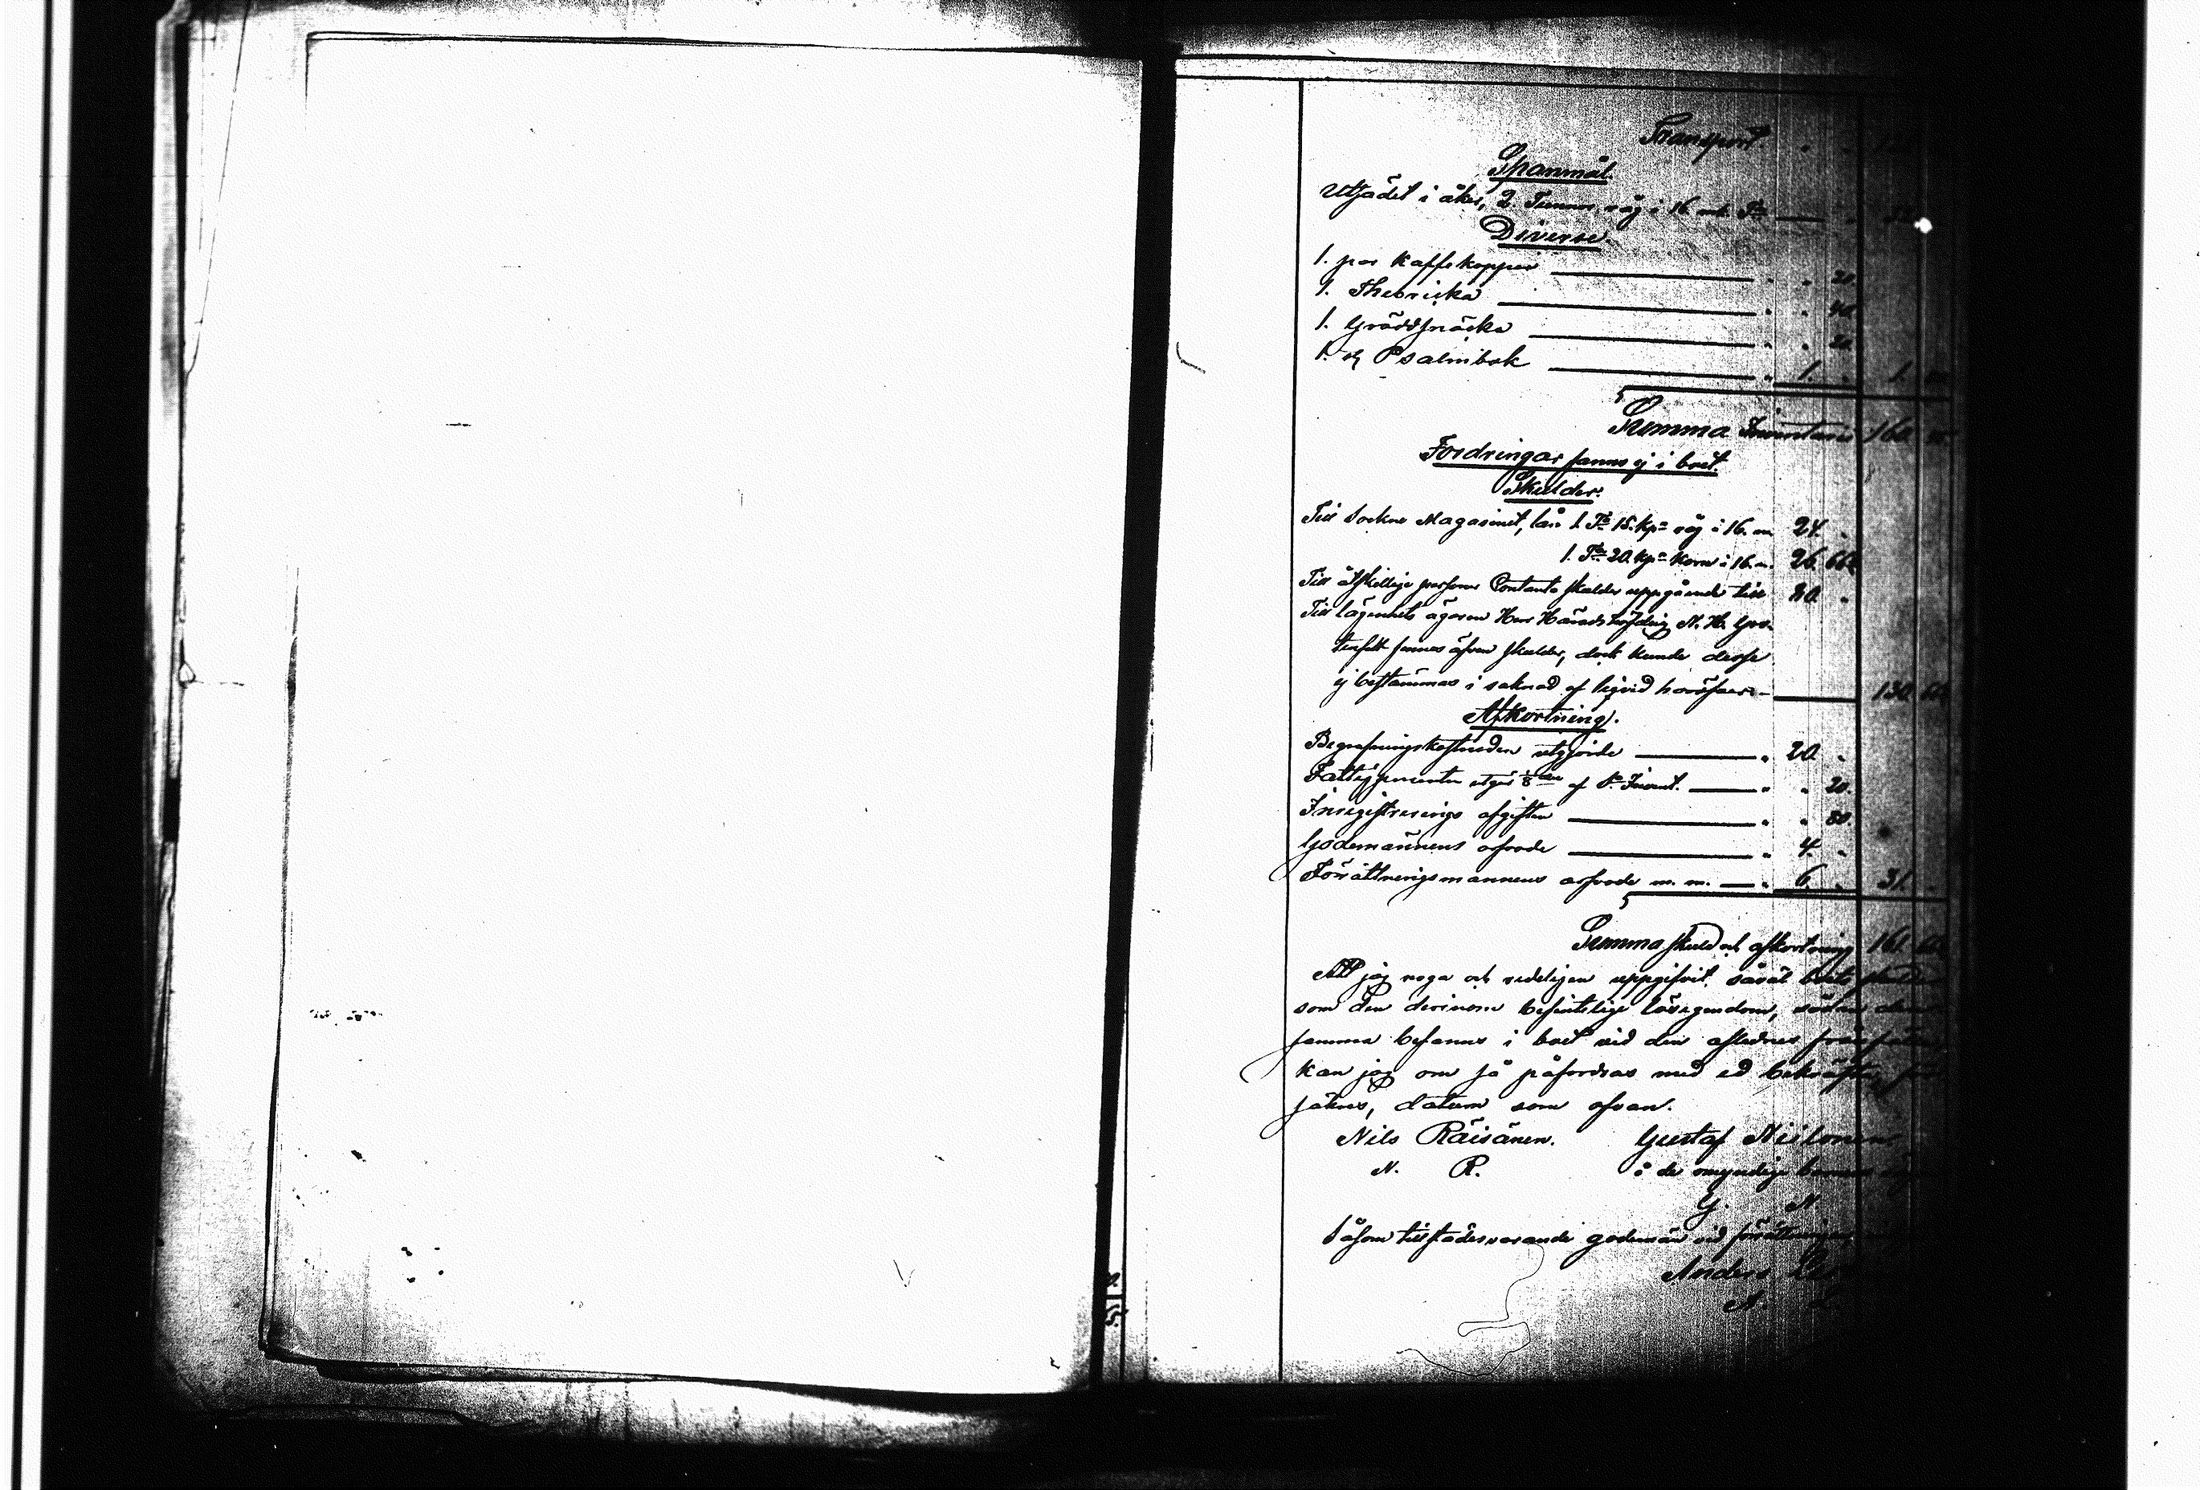 Transport " "
Spanmål.
Utsädet i åker, 2. Tunnor råg à 16 mk Tn "
Diverse.
1. par Kaffekoppar " " 20.
1. Thebricka " " 40.
1. Gräddsnäcka " " 20.
1. st Psalmbok " 1. " 1.
Summa Inventarii 160.
Fordringar fanns ej i boet.
Skulder.
Till Sockne Magasinet, lån 1. Tn 15. kpr råg à 16. m. 24. "
1. Tn 20. kpr korn à 16. m. 26. 66.
Till åtskillige personer Contanta skulder uppgående till 80. "
Till lägenhets ägaren Herr Häradshöfding N. H.
finnes äfven skulder, dock kunde desse
ej bestämmas i saknad af liqvid 130. 66
Afkortning.
Begrafningskostnaden utgjorde " 20. "
Fattigprocenten utgör 1/8 af Invent. " " 20.
Inregistrerings afgiften " " 80.
Godemännens arfvode " 4. "
Förrättningsmannens arfvode m. m. " 6. " 31. "
Summa skuld och afkortning 161. 66
Att jag noga och redeligen uppgifvit såväl boets skulder
som den derinom befintelige lösegendom, sådan den
samma befanns i boet vid den aflednes frånfälle
kan jag om så påfordras med ed bekräfta,
datum som ofvan.
Nils Räisänen. Gustaf Niilonen
N. R. å de omyndige barnens
G. N.
Såsom tillstädesvarande godemän vid förrättningen
Anders
A. L.